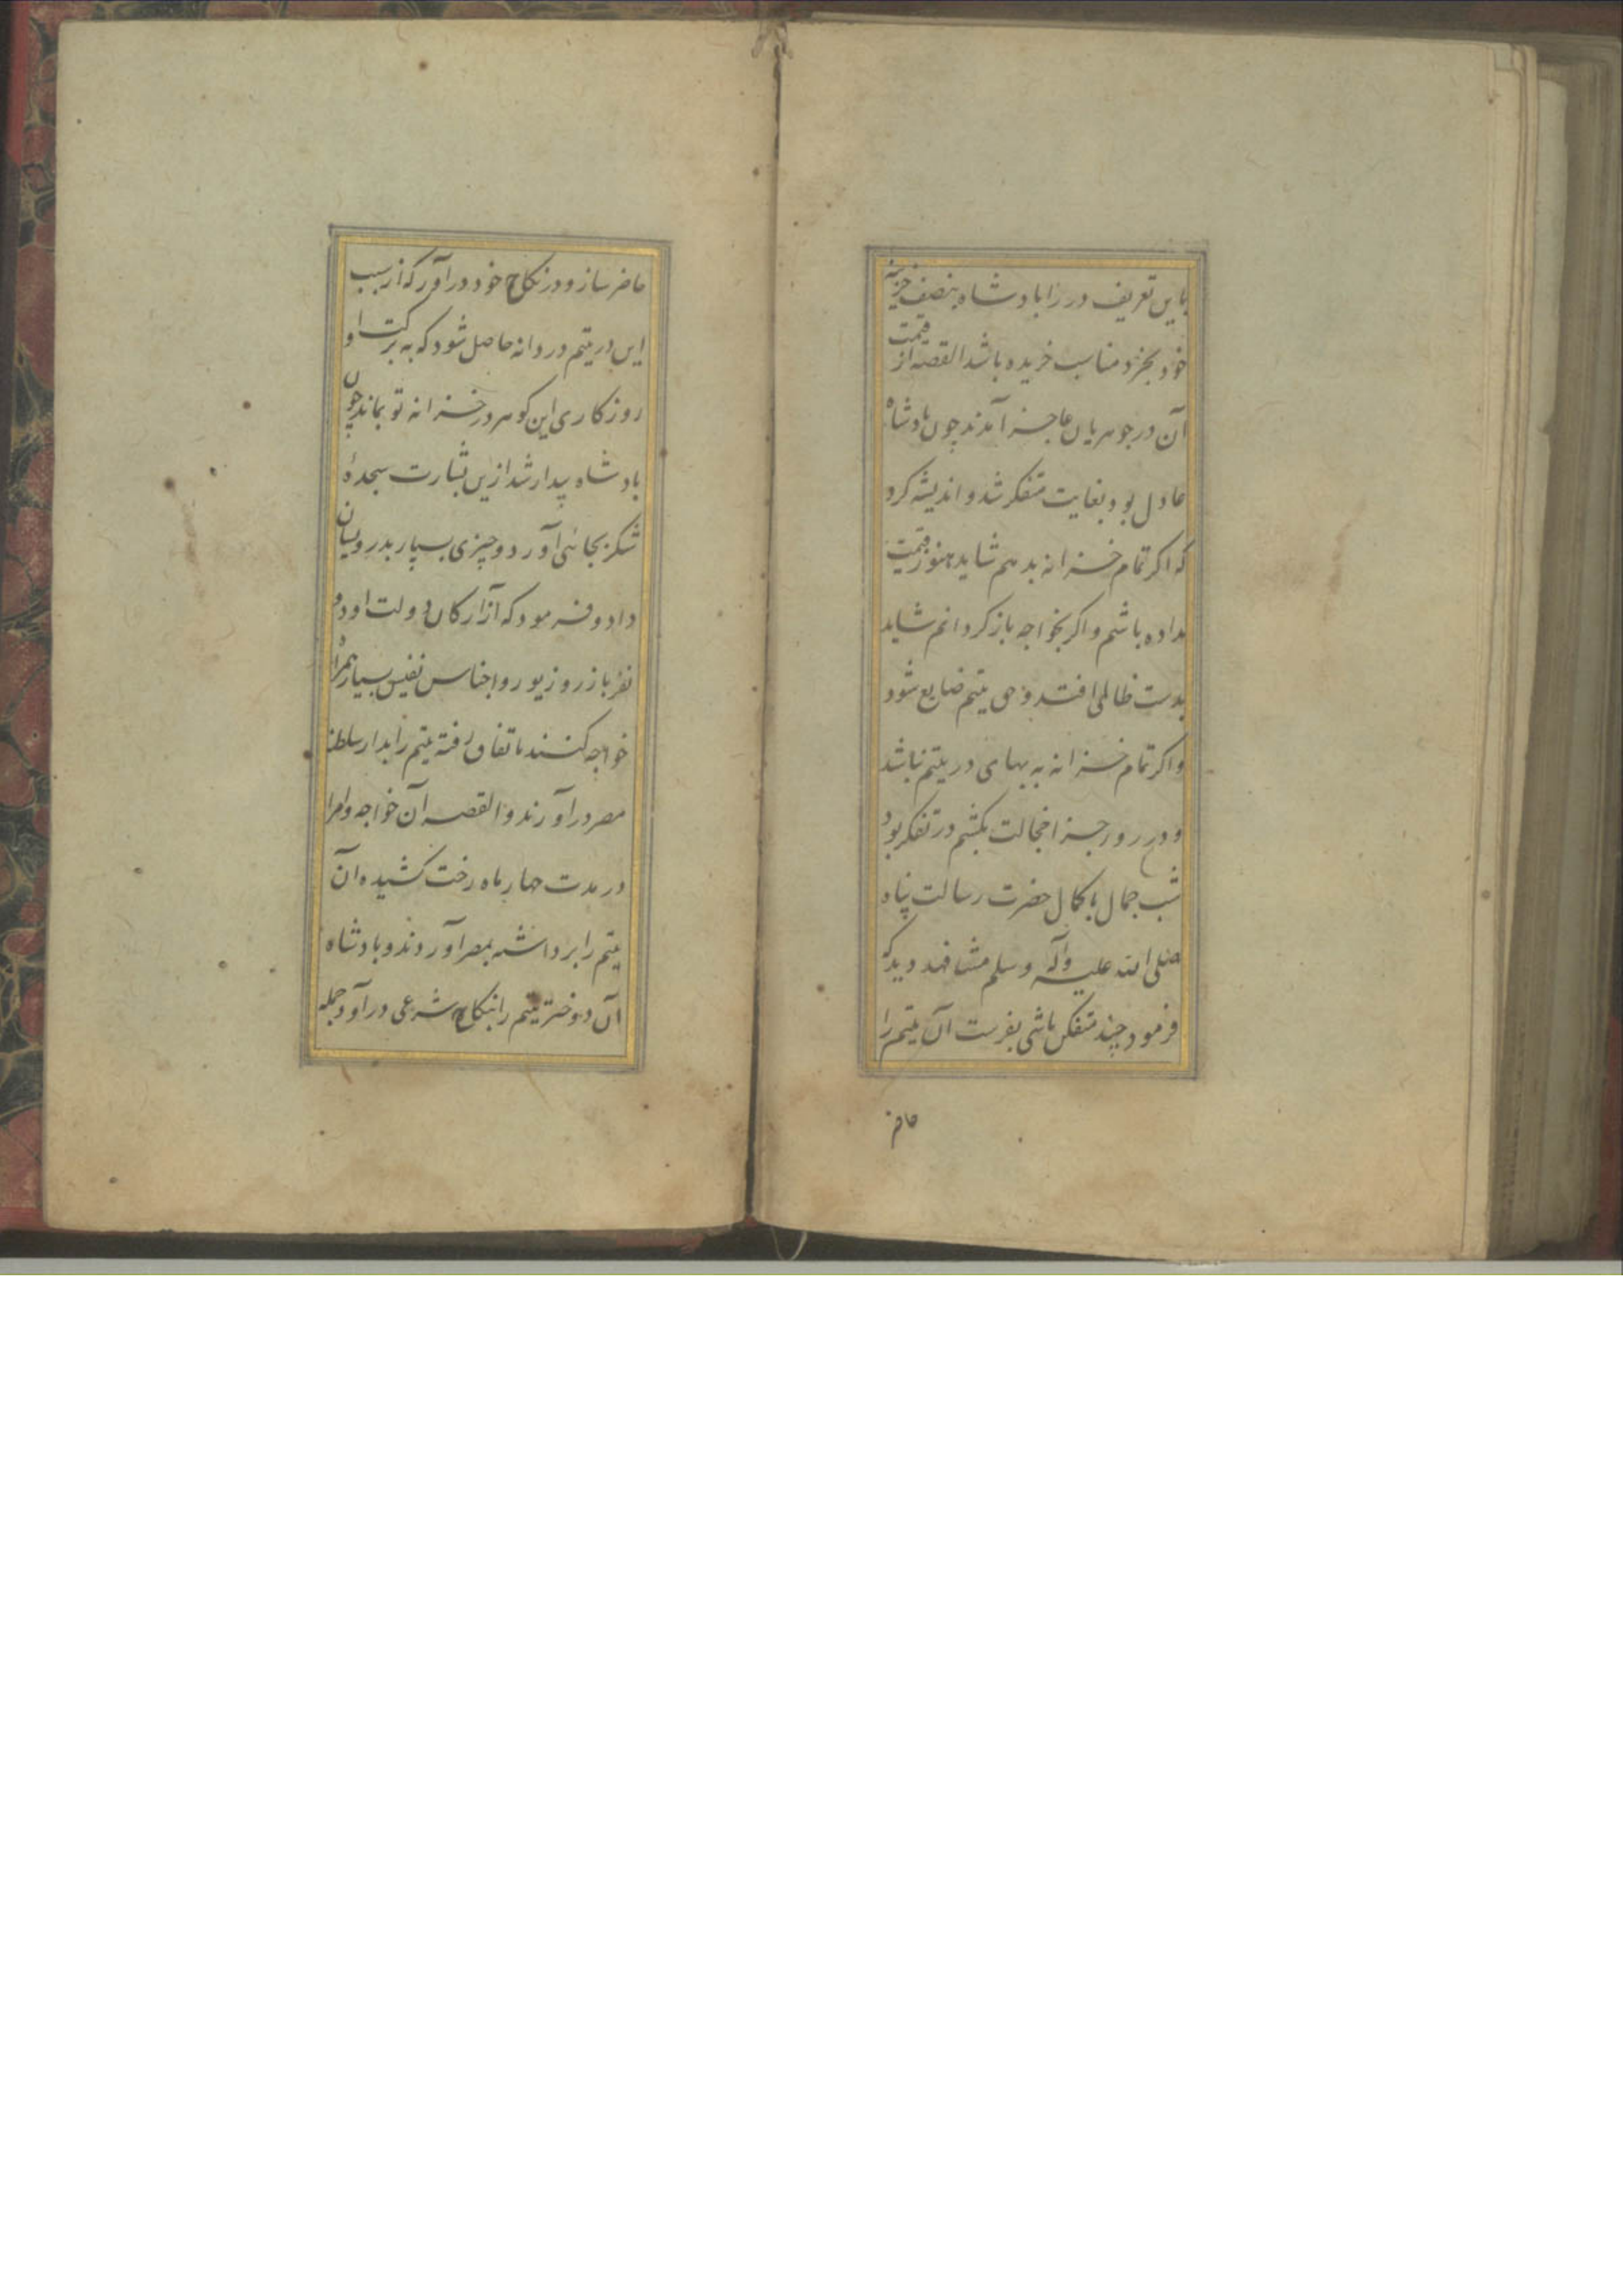 باین تعریف در را بادشاه بنصف خزینه
خود بخرد مناسب خریده باشد القصه از قیمت
آن در جوهریان عاجز آمدند چون بادشاه
عادل بود بغایت متفکر شد و اندیشه کرد
که اکر تمام خزانه بدهم شاید هنوز قیمت
نداده باشم و اکر بخواجه باز کردانم شاید
بدست ظالمی افتد و حق یتیم ضایع شود
و اکر تمام خزانه به بهای در یتیم نباشد
و در روز جزا خجالت بکشم در تفکر بود
شب جمال باکمال حضرت رسالت پناه
صلی الله علیه وآله وسلم مشاهده دید که
فرمود چند متفکر باشی بفرست آن یتیم را
حاضر
حاضر ساز و در نکاح خود در آور که از سبب
این در یتیم دردانه حاصل شود که به برکت او
روزکاری این کوهر در خزانه تو بماند چون
بادشاه بیدار شد ازین بشارت سجدهٔ
شکر بجا آورد و چیزی بسیار بدرویشان
داد و فرمود که از ارکان دولت او دو
نفر با زر و زیور و اجناس نفیس بسیار همراه
خواجه کنند باتفاق رفته یتیم را بدار سلطنة
مصر در آورند و القصه آن خواجه و امرا
در مدت چهار ماه رخت کشیده آن
یتیم را برداشته بمصر آوردند و بادشاه
آن دوختر یتیم را بنکاح شرعی در آورد جمله